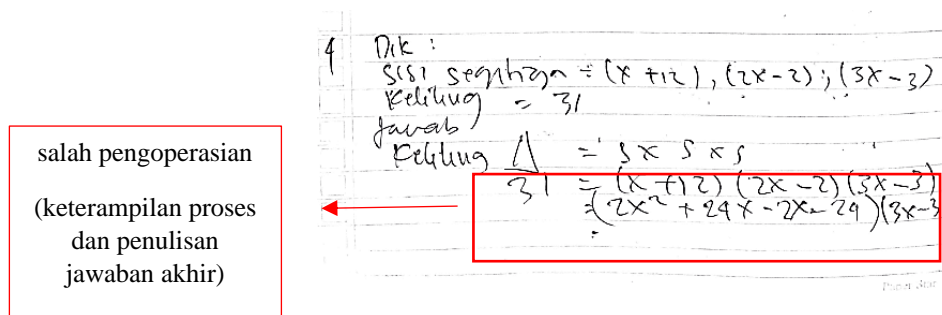 salah pengoperasian
(keterampilan proses
dan penulisan
jawaban akhir)
4 Dik :
sisi segitiga = (x +12), (2x-2), (3x-3)
Keliling = 31
Jawab
Keliling △ = s x s x s
31 = (x +12) (2x -2) (3x -3)
=(2x² + 24x - 2x - 24) (3x-3
Paper Star